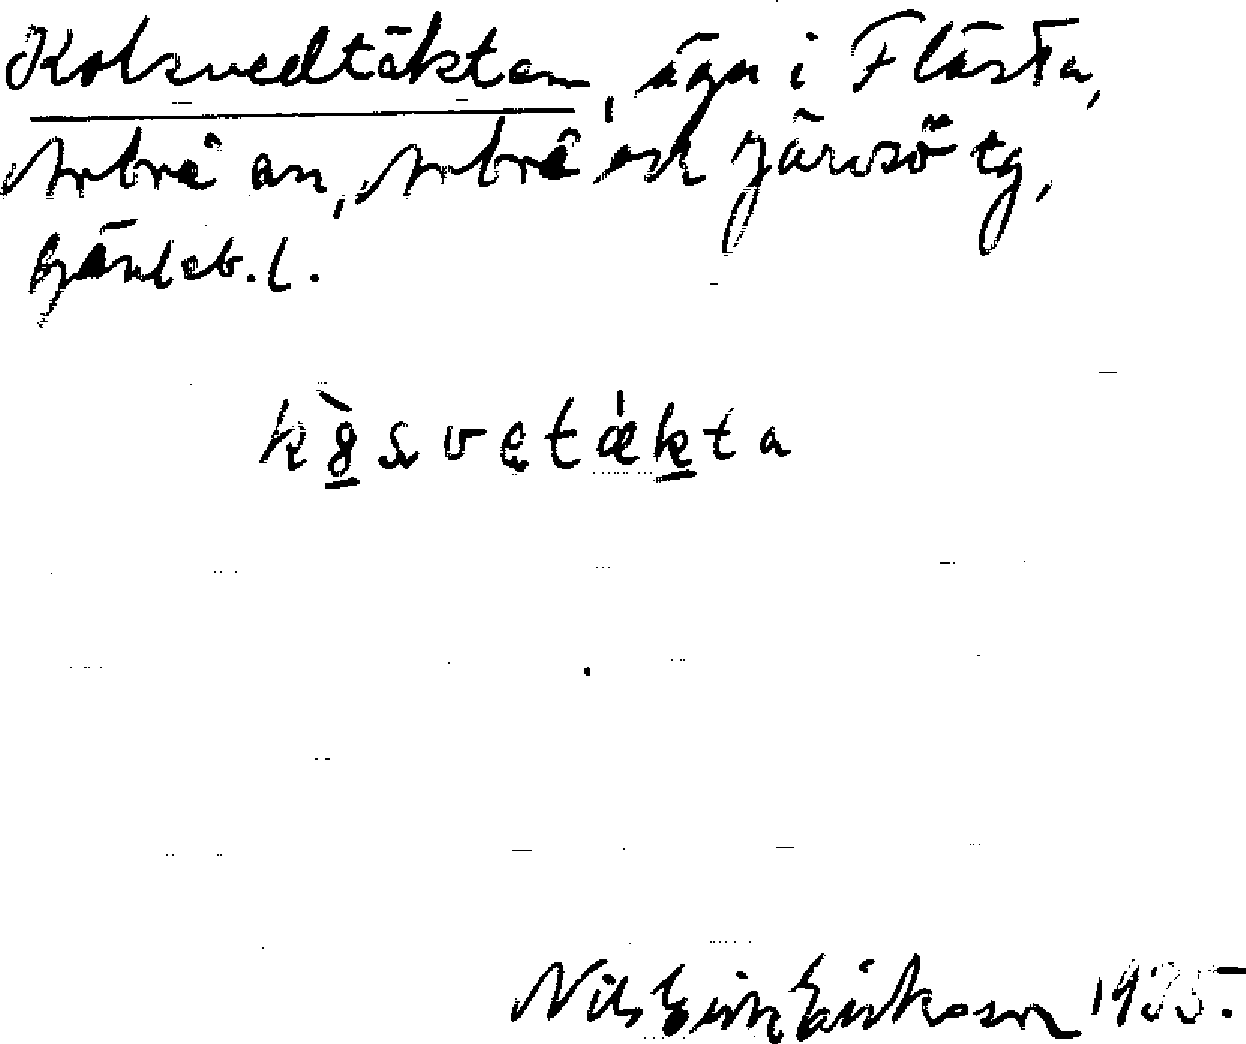 Kolsvedtäkten, ägn i Flästa,
Arbrå sn, Arbrå och Järvsö tg,
Gävleb. l.
kòsvetækta
Nils Erik Eriksson 1935.